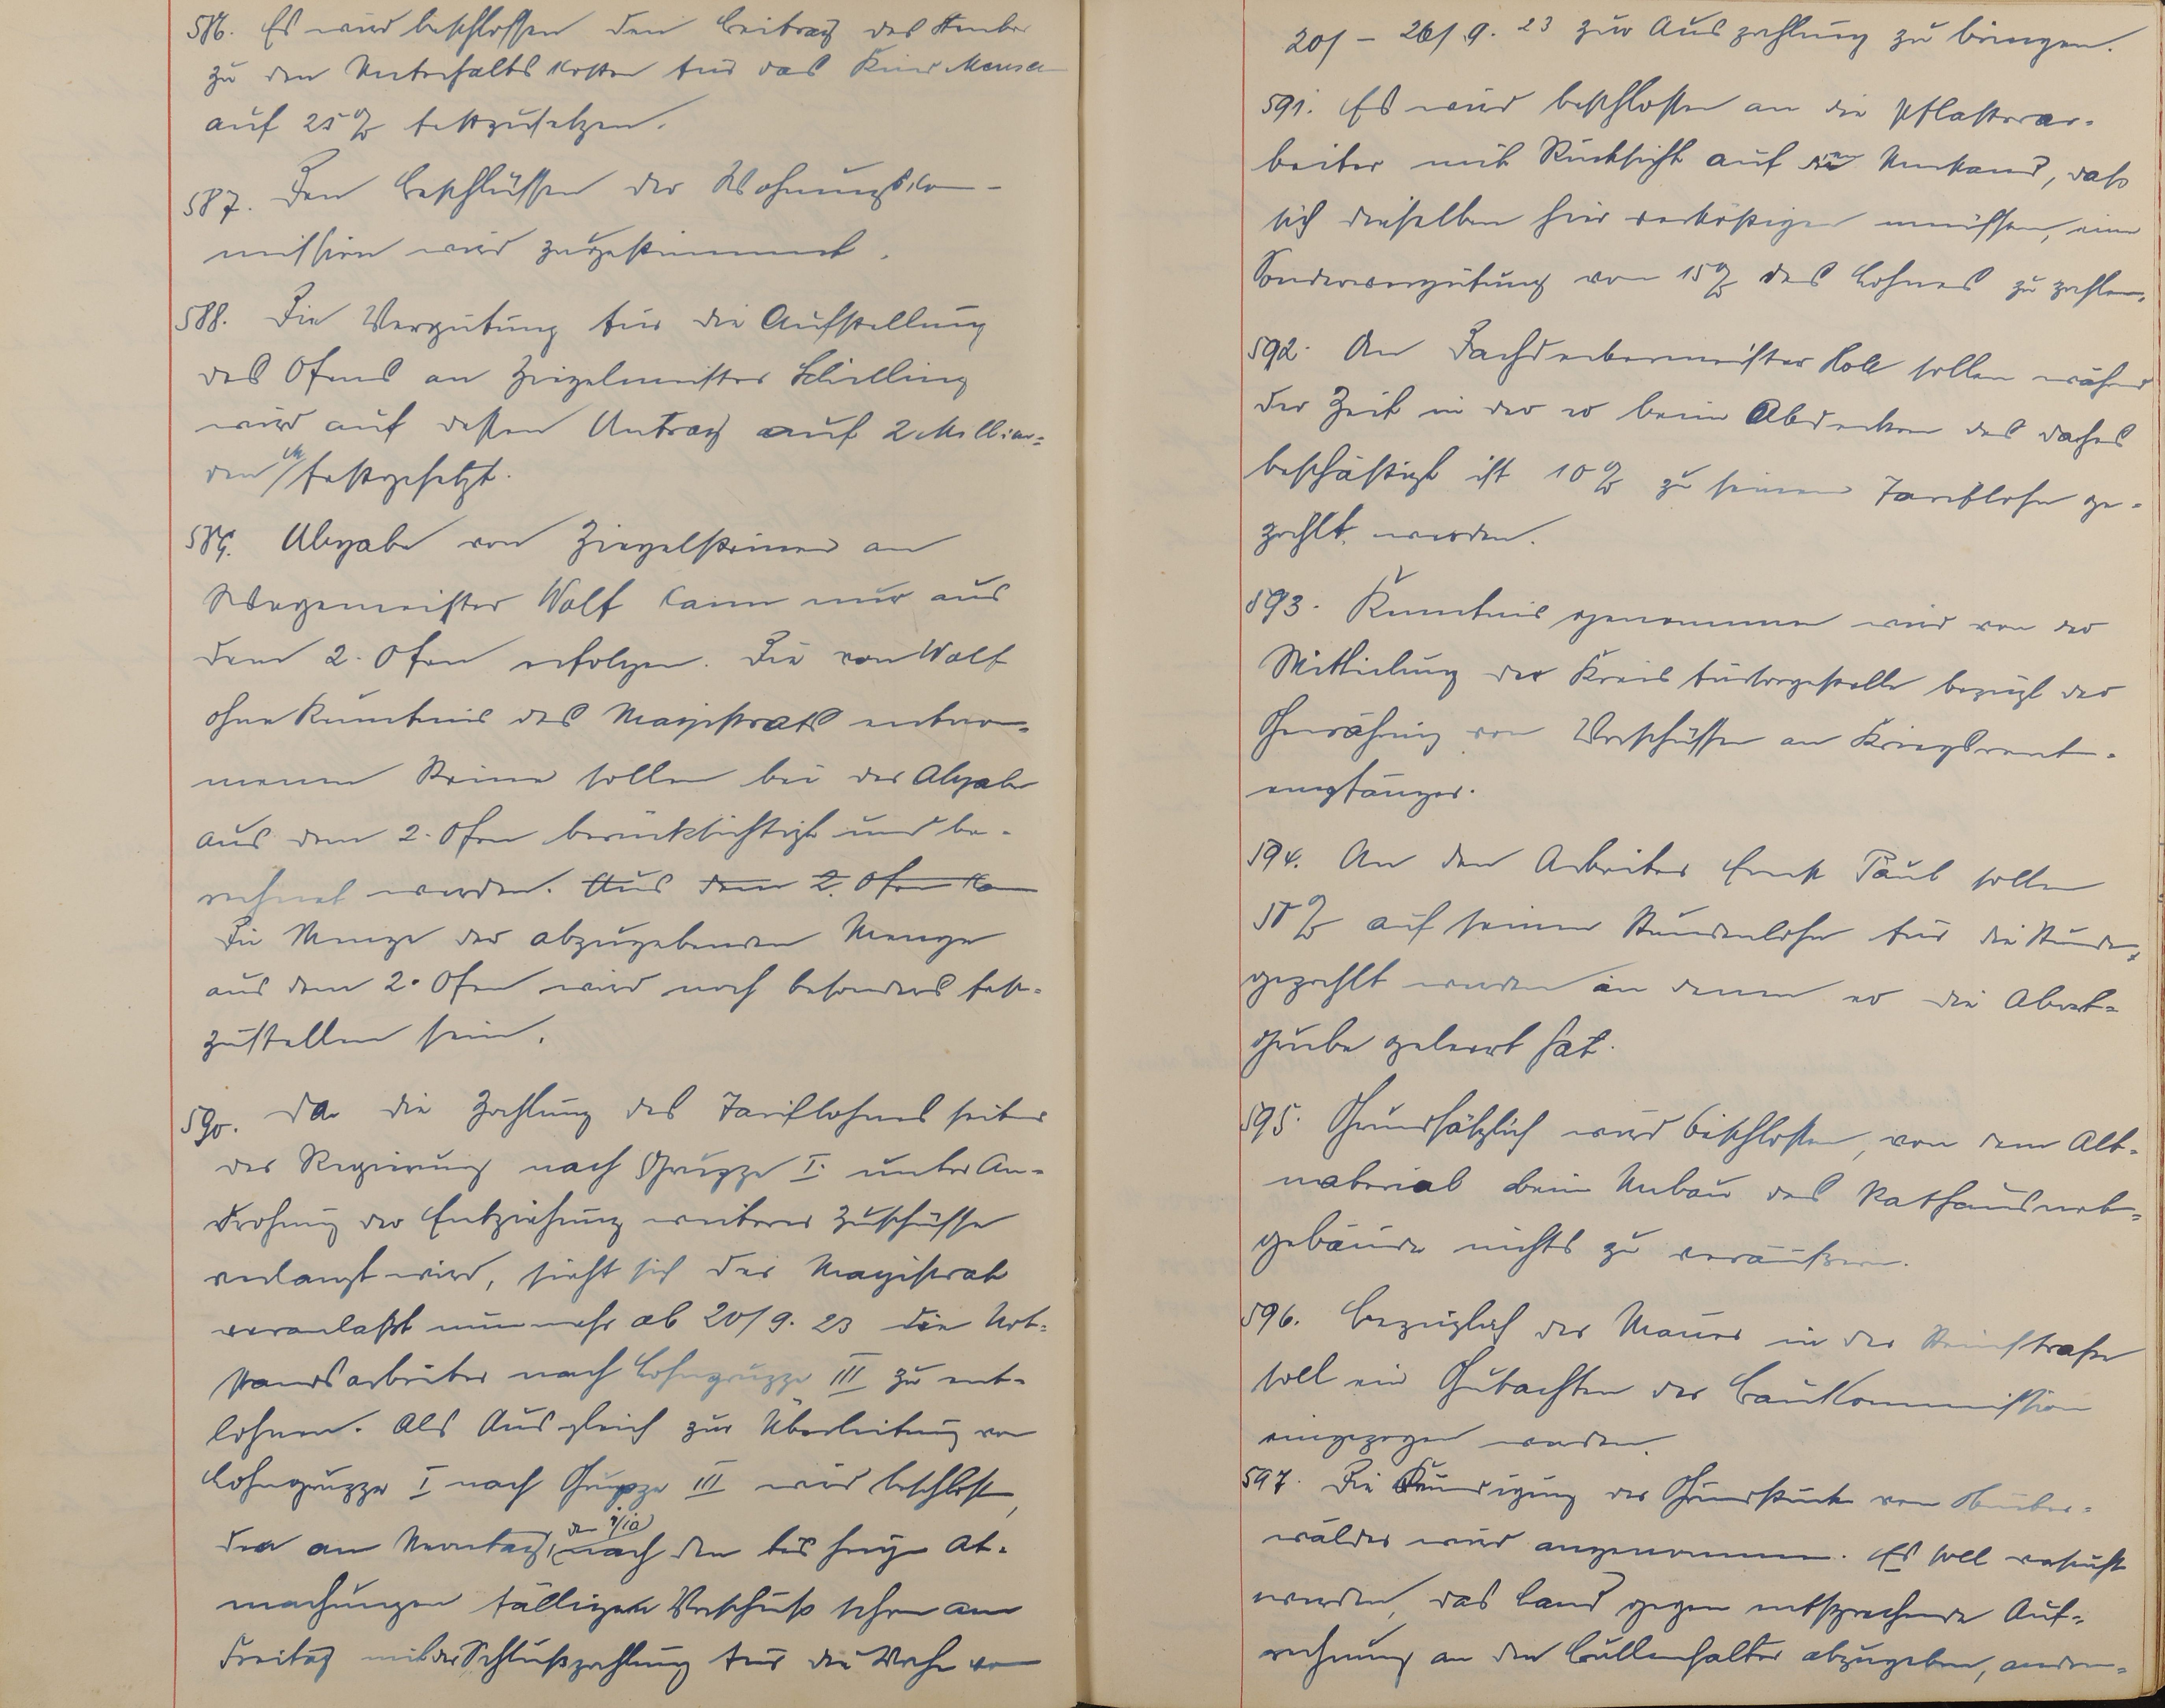 586. Es wird beschlossen den Beitrag des
zu den Unterhaltskosten für das Kind
auf 25 % festzusetzen.
587. Den Beschlüssen der Wohnungskom-
mission wird zugestimmt.
588. Die Vergütung für die Aufstellung
des Ofens an Ziegelmeister Schilling
wird auf dessen Antrag auf 2 Milliar-
den M festgesetzt.
589. Abgabe von Ziegelsteinen an
Wegemeister Wolf kann nur aus
dem 2. Ofen erfolgen. Die von Wolf
ohne Kenntnis des Magistrats entnom-
menen Steine sollen bei der Abgabe
aus dem 2. Ofen berücksichtigt und be-
rechnet werden. Aus dem 2. Ofen ka
Die Menge der abzugebenden Menge
aus dem 2. Ofen wird noch besonders fest-
zustellen sein.
590. Da die Zahlung des Tariflohnes seitens
der Regierung nach Gruppe I. unter An-
drohung der Entziehung weiterer Zuschüsse
verlangt wird, sieht sich der Magistrat
veranlaßt nunmehr ab 20/9. 23 die Not-
standsarbeiter nach Lohngruppe III zu ent-
lohnen. Als Ausgleich zur Überleitung von
Lohngruppe I nach Gruppe III wird beschlossen,
den am Montag, den 1/10 nach den bisherigen Ab-
machungen fälligen Vorschuß schon am
Freitag mit der Schlußzahlung für die Woche vom
20/ - 26/ 9. 23 zur Auszahlung zu bringen.
591. Es wird beschlossen an die Pflasterar-
beiter mit Rücksicht auf den Umstand, daß
sich dieselben hier verköstigen müssen, eine
Sondervergütung von 15 % des Lohnes zu zahlen.
592. An Dachdeckermeister Koll sollen während
der Zeit in der er beim Abdecken des Daches
beschäftigt ist 10 % zu seinem Tariflohn ge-
zahlt werden.
593. Kenntnis genommen wird von der
Mitteilung der Kreisfürsorgestelle bezügl der
Gewährung von Vorschüssen an Kriegsrent-
empfänger.
594. An den Arbeiter Ernst Paul sollen
50 % auf seinen Stundenlohn für die Stunden
gezahlt werden in denen er die Abort-
grube geleert hat.
595. Grundsätzlich wird beschlossen, von dem Alt-
material beim Umbau des Rathausneb-
gebäude nichts zu veräußern.
596. Bezüglich der Mauer in der Steinstraße
soll ein Gutachten der Baukommission
eingezogen werden.
597. Die Kündigung der Grundstücke von
wälder wird angenommen. Es soll versucht
werden, das Land gegen entsprechende Auf-
rechnung an den Bullenhalter abzugeben, andern-